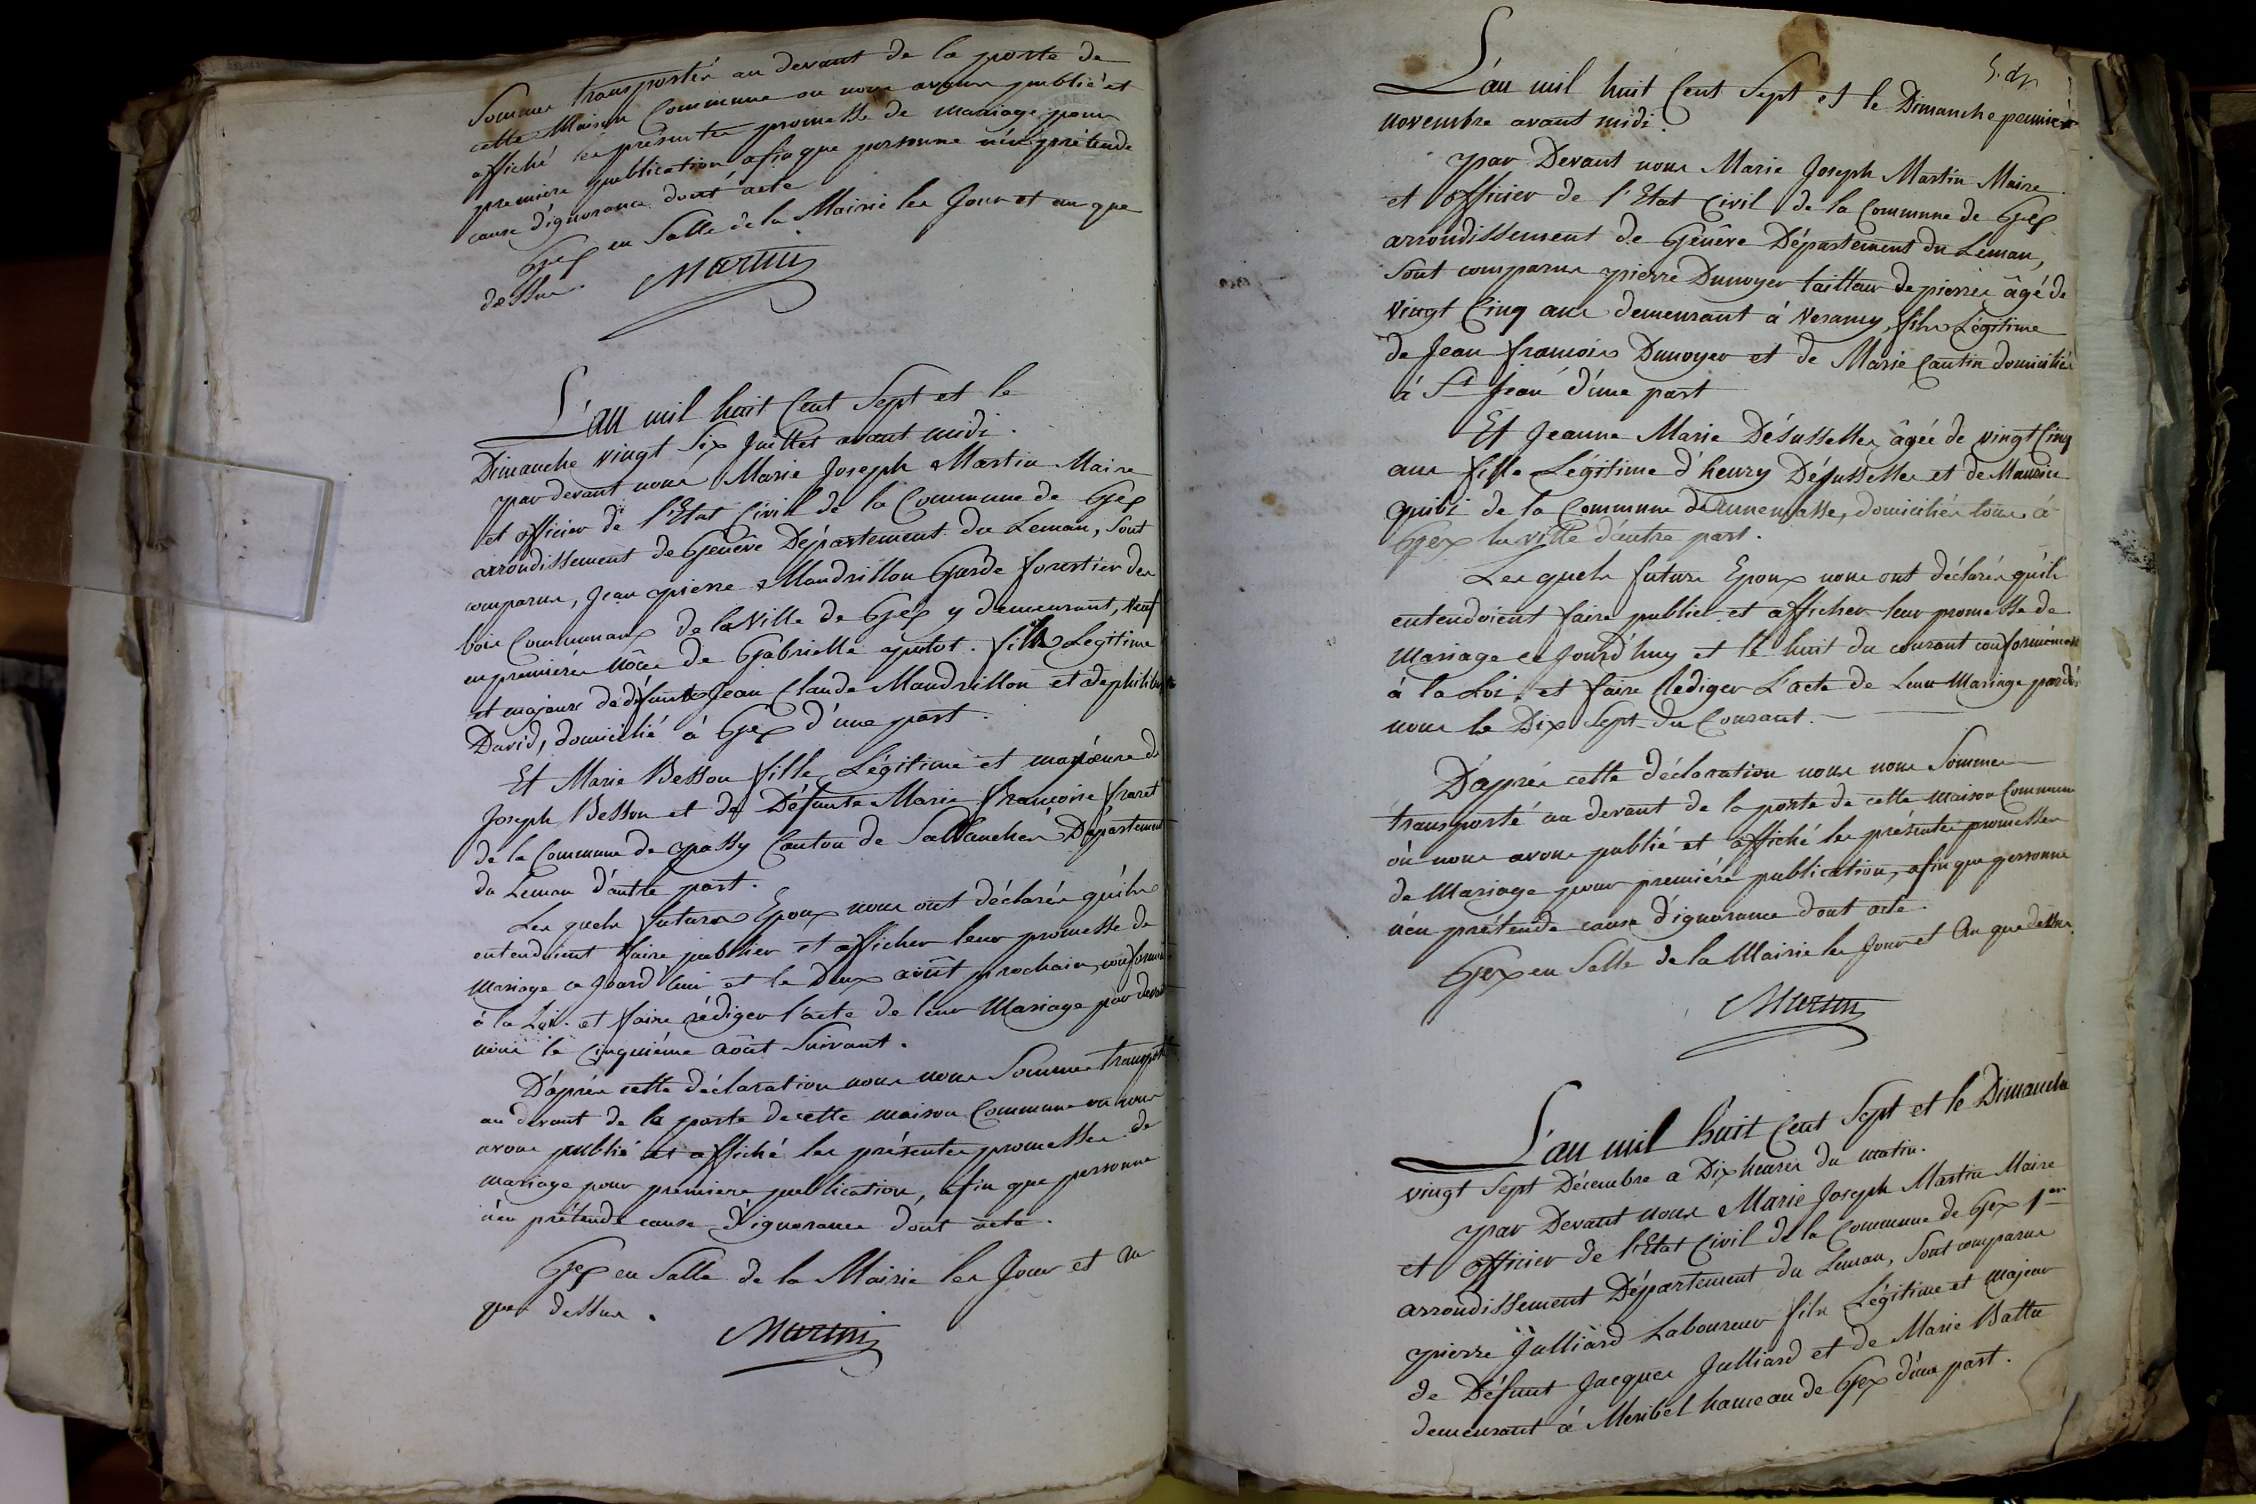 Sommes transportés au devant de la porte de
cette Maison Commune ou nous avons publié et
affiché les présentes promesse de mariage pour
premiere publication afin que personne n'en prétende
cause d'ignorance dont acte
Gex en Salle de la Mairie les Jour et an que
dessus.
Martin
L'an mil huit Cent Sept et le
Dimanche vingt Six Juillet avant midi.
par devant nous Marie Joseph Martin Maire
et officier de l'Etat Civil de la Commune de Gex
arrondissement de Genêve Département du Leman, Sont
comparus, Jean pierre Mandrillon Garde forestier des
bois Communaux de la Ville de Gex y demeurant, veuf
en premiéres nôces de Gabrielle fils Légitime
et majeur de défunts Jean Claude Mandrillon et de
David, domicilié à Gex d'une part.
Et Marie Besson fille Légitime et majeure de
Joseph Besson et de Défunte Marie françoise
de la Commune de passy Canton de Sallanches Département
du Leman d'autre part.
Les quels futurs Epoux nous ont déclarés qu'ils
entendoient faire publier et afficher leur promesse de
Mariage ce Jourd'hui et le Deux août prochain,
à la Loi. et faire rédiger l'acte de leur Mariage par devant
nous le Cinquiéme Août Suivant.
D'après cette déclaration nous nous Sommes
au devant de la porte de cette maison Commune ou nous
avons publié et affiché les présentes promesses de
mariage pour premiere publication, afin que personne
n'en prétende cause d'ignorance dont acte.
Gex en Salle de la Mairie les Jour et an
que dessus.
Martin
L'an mil huit Cent Sept et le Dimanche premier
novembre avant midi.
par Devant nous Marie Joseph Martin Maire
et officier de l'Etat Civil de la Commune de Gex
arrondissement de Genêve Département du Leman,
Sont comparus pierre Dunoyer tailleur de pierres âgé de
vingt Cinq ans demeurant à Vesancy, fils Légitime
de Jean françois Dunoyer et de Marie Cantin domiciliés
à St Jean d'une part
Et Jeanne Marie Désusselles âgée de vingt Cinq
ans fille Légitime d'henry Désusselles et de
de la Commune d'annemasse, domiciliés tous à
Gex la ville d'autre part.
Les quels futurs Epoux nous ont déclarés qu'ils
entendoient faire publier et afficher leur promesse de
Mariage ce Jourd'huy et le huit du courant conformément
à la Loi. et faire Rediger l'acte de Leur Mariage
nous le Dix Sept du Courant.
D'après cette déclaration nous nous Sommes
transporté au devant de la porte de cette Maison Commune
où nous avons publié et affiché les présentes promesses
de Mariage pour premiére publication, afin que personne
n'en prétende cause d'ignorance dont acte.
Gex en Salle de la Mairie les Jour et An que dessus.
Martin
L'an mil huit Cent Sept et le Dimanche
vingt Sept Décembre a Dix heures du matin.
par Devant nous Marie Joseph Martin Maire
et officier de l'Etat Civil de la Commune de Gex 1er
arrondissement Département du Leman, Sont comparus
pierre Julliard Laboureur fils Légitime et majeur
de Défunt Jacques Julliard et de Marie Battu
demeurant à Meribel hameau de Gex d'une part.